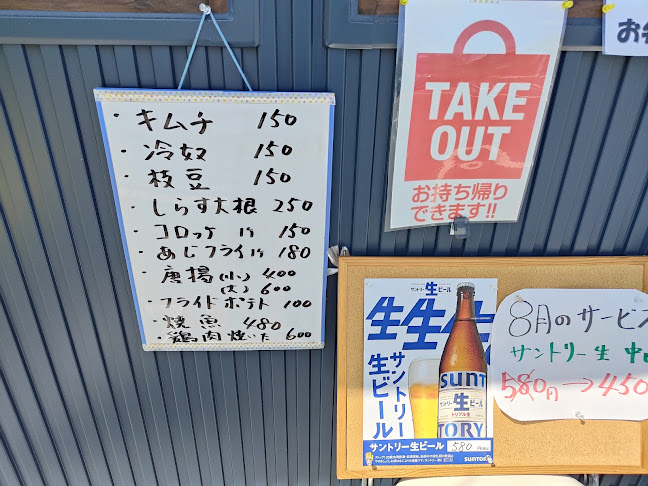 ・キムチ 150
・冷奴 150
・枝豆 150
・しらす大根 250
・コロッケ 1ケ 150
・あじフライ 1ケ 180
・唐揚(小) 400
(大) 600
・フライドポテト 100
・焼魚 480
・鶏肉焼いた 600
TAKE
OUT
お持ち帰り
できます!!
お
サントリー生ビール
生生生
サントリー
生ビール
SUNT
サントリー
生
ビール
トリプル生
TORY
サントリー生ビール 580
SUNTORY
8月のサービス
サントリー生 中
580円→450